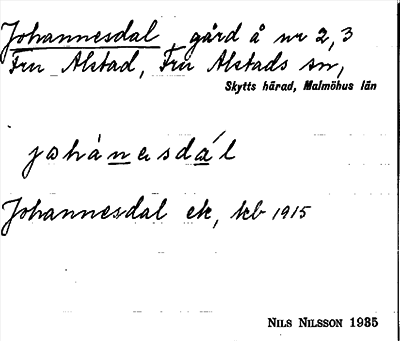 Johannesdal gård å nr 2,3
Fru Alstad, Fru Alstads sn,
Skytts härad, Malmöhus län
johànesdál
Johannesdal ek, kb 1915
NILS NILSSON 1935